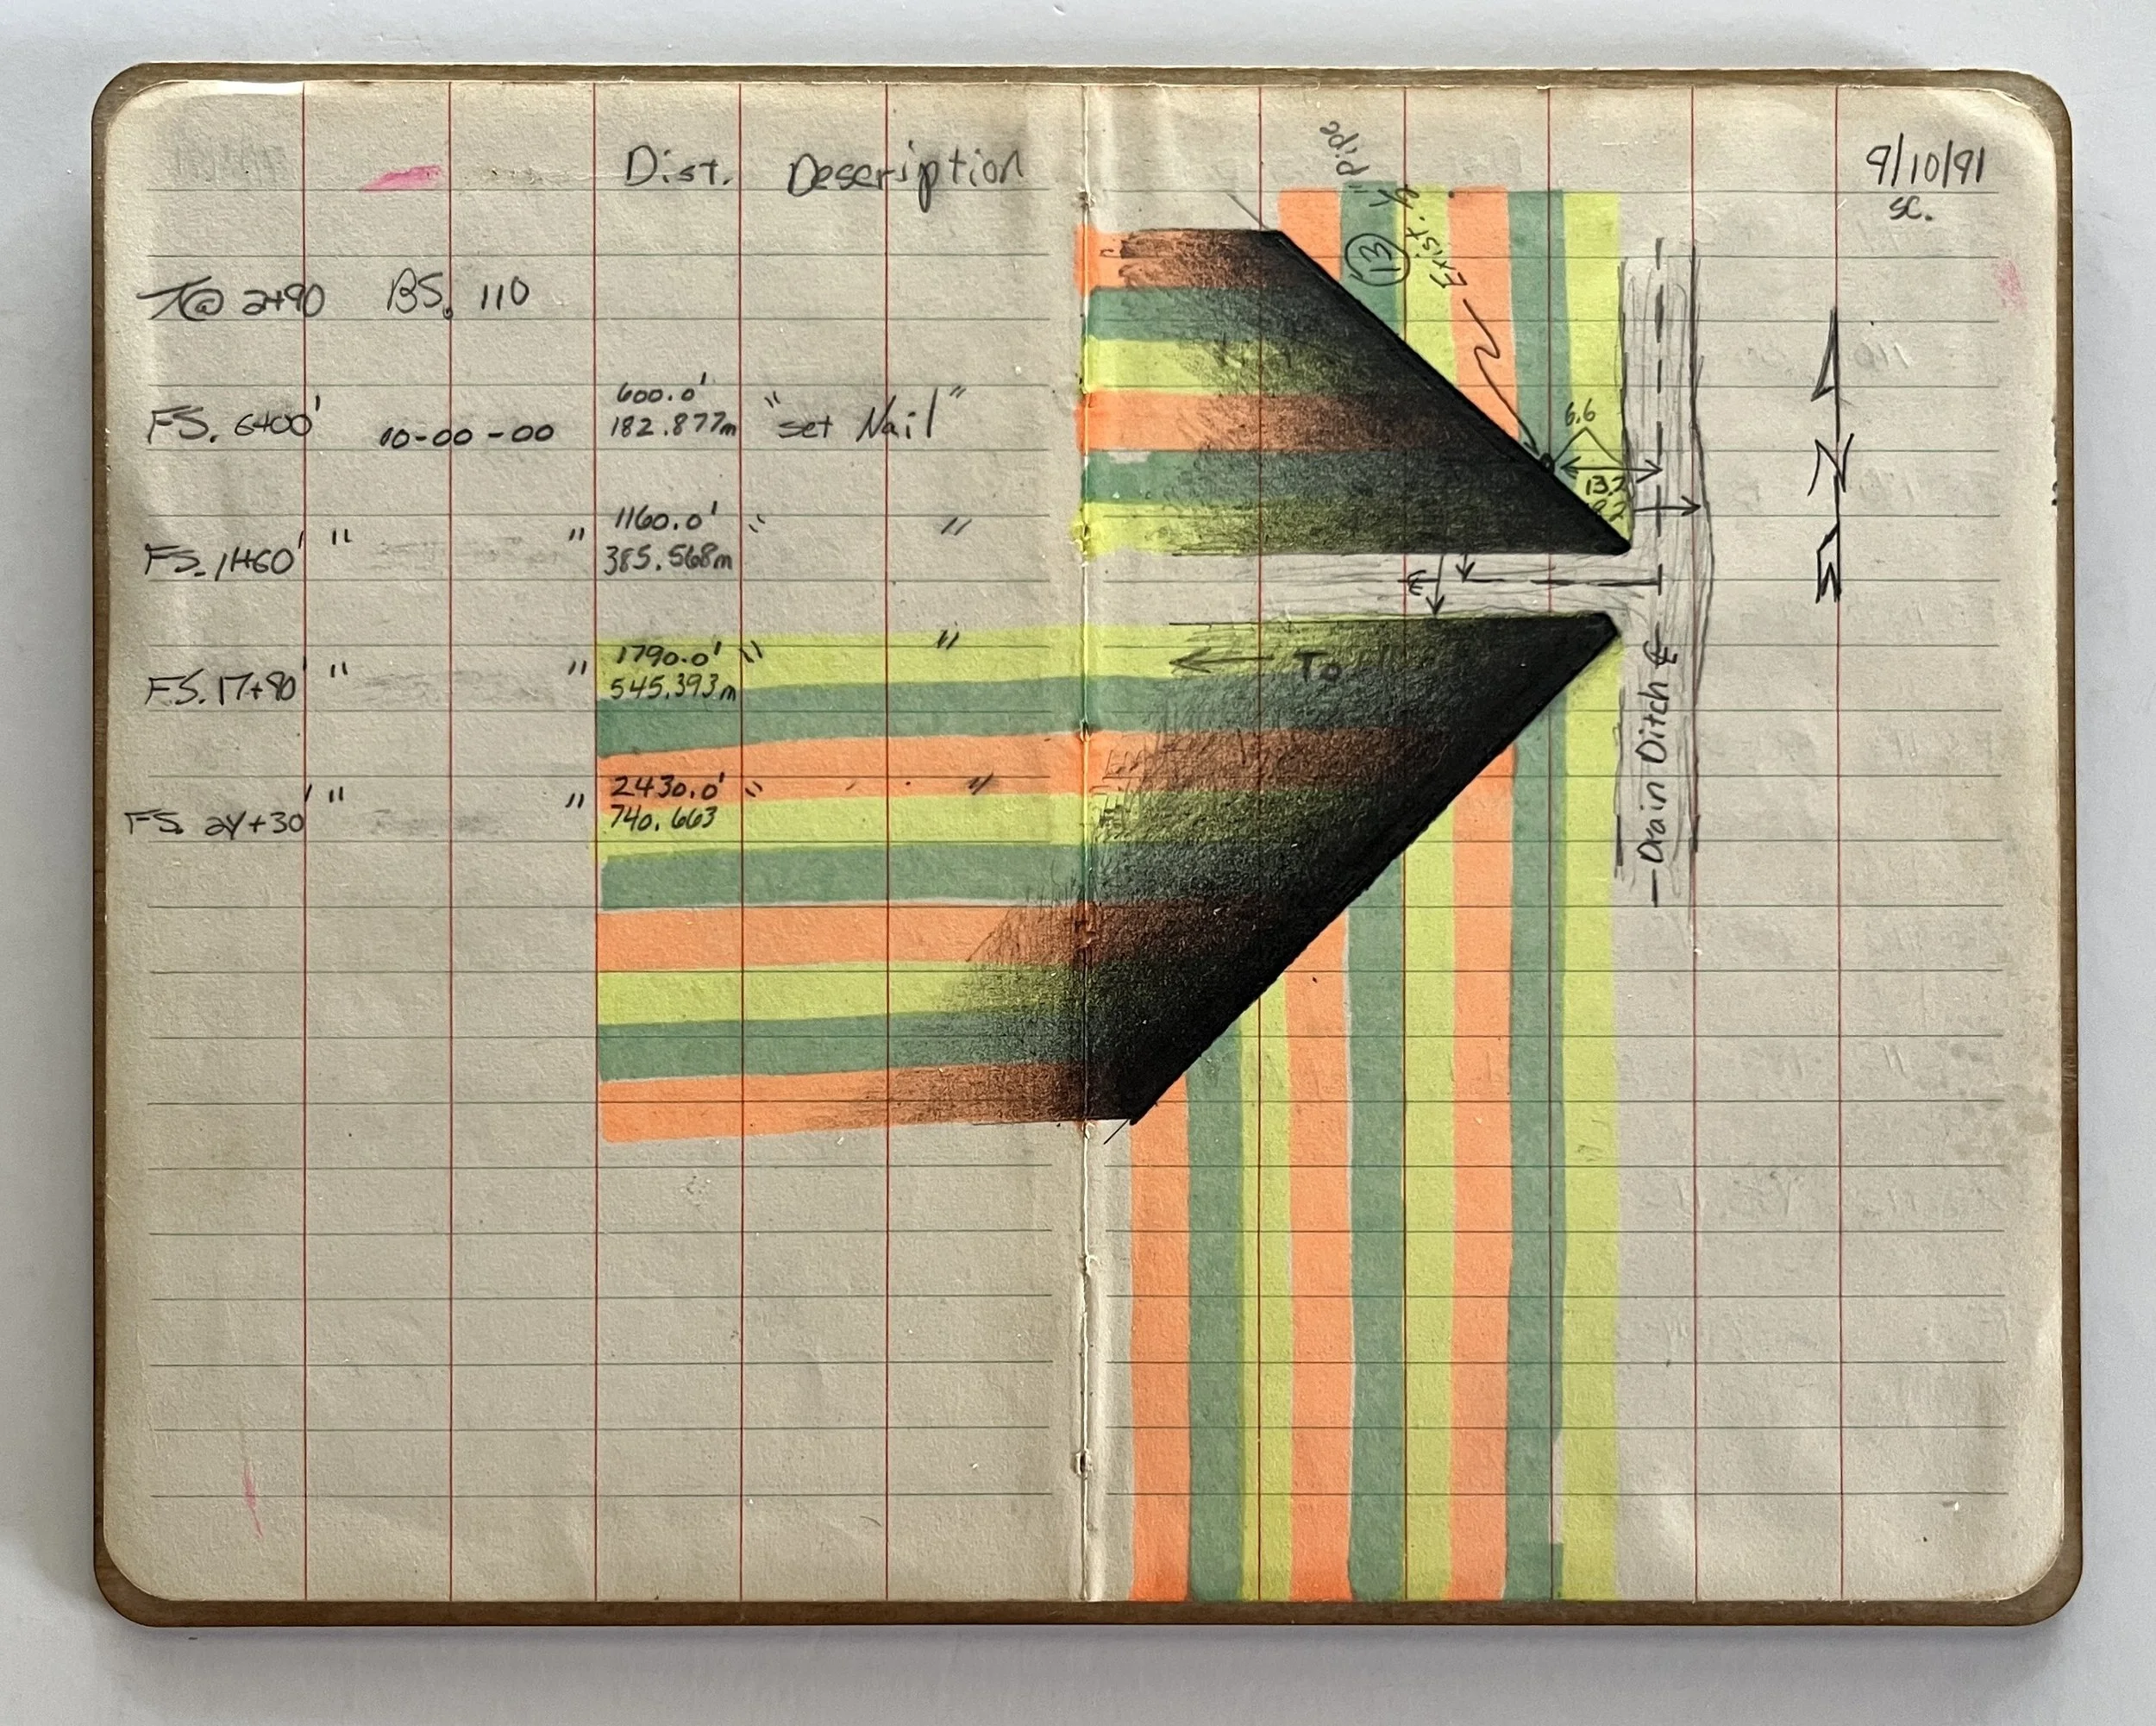 Dist. Description
⊼@ 2+90 BS. 110
600.0'
FS. 6+00' 10-00-00 182.877m "set Nail"
1160.0'
FS. 11+60' " " 385.568m " "
1790.0'
FS. 17+90' " " 545.393m " "
2430.0'
FS. 24+30' " " 740.663 " "
9/10/91
SC.
Pipe
13
Exist.
6.6
13.2
To
Drain Ditch ℄
N